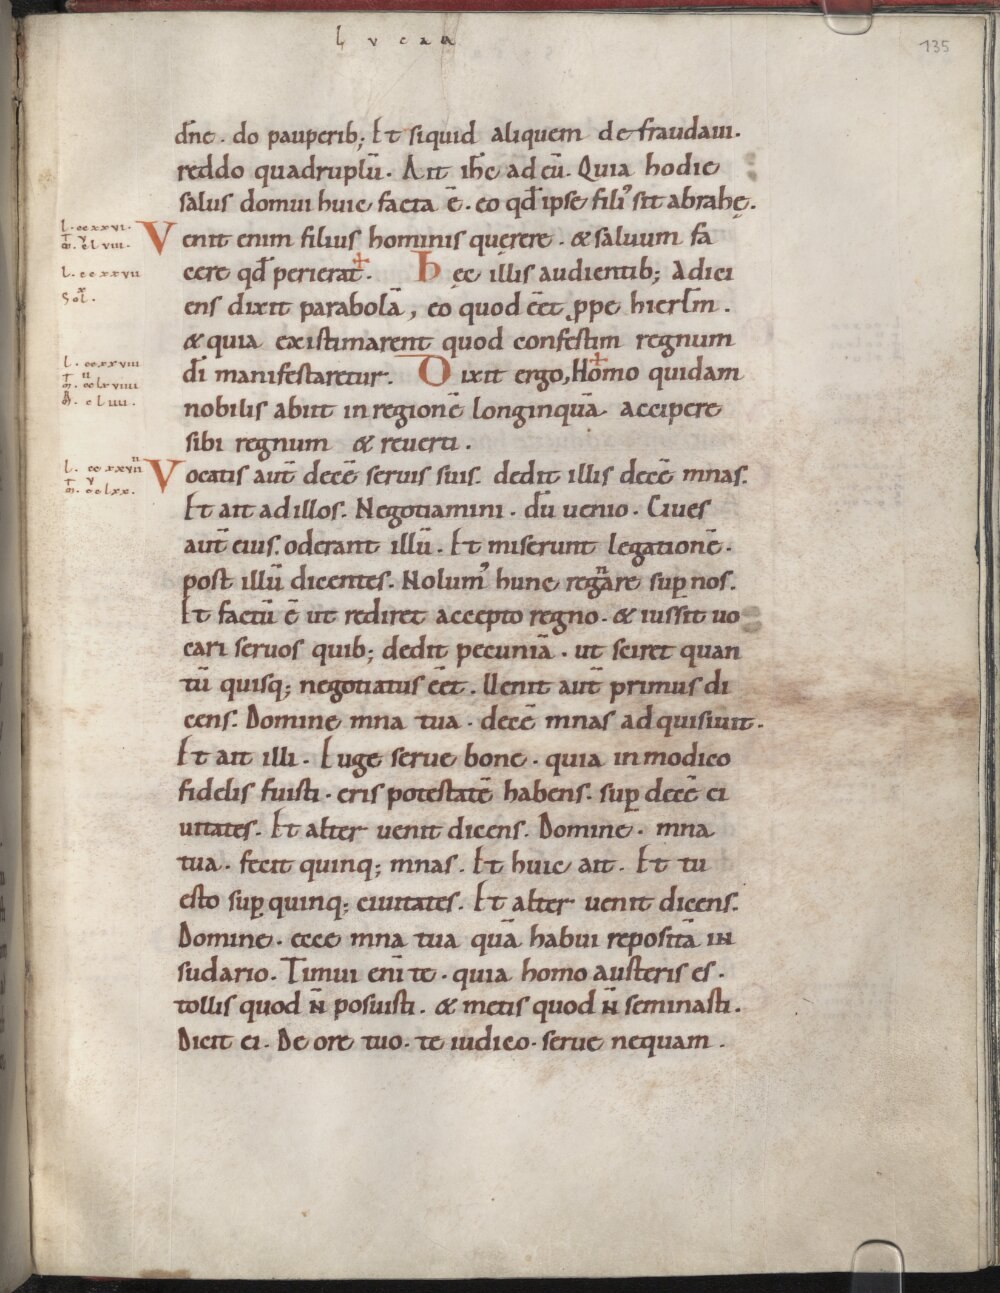 lvcaa
135
dn̄e . do pauperib; Et siquid aliquem defraudaui.
reddo quadruplū. Ait ih̄c ad eū. Quia hodie
salus domui huic facta ē. eo qđ ipse fili᾽ sit abrahę.
l. ccxxvi.
Venit enim filius hominis querere . & saluum fa
m̄. clviii.
l. ccxxvii
cere qđ perierat. Hęc illis audientib; Adici
Sol.
ens dixit parabolā, eo quod eēt ꝓpe hierlm̄.
& quia existimarent quod confestim regnum
l. ccxxviii
dī manifestaretur. Dixit ergo, Homo quidam
m̄. cclxviiii
nobilis abiit in regionē longinquā accipere
sibi regnum & reuerti.
l. ccxxviiii
Vocatis aut̄ decē seruis suis. dedit illis decē mnas.
m̄. cclxx.
Et ait ad illos. Negotiamini . dū uenio. Ciues
aut̄ eius. oderant illū. Et miserunt legationē.
post illū dicentes. Nolum᾽ hunc regnare suꝑ nos.
Et factū ē ut rediret accepto regno. & iussit uo
cari seruos quib; dedit pecuniā . ut sciret quan
tū quisq; negotiatus eēt. Uenit aut̄ primus di
cens. Domine mna tua . decē mnas adquisiuit.
Et ait illi. Euge serue bone . quia in modico
fidelis fuisti . eris potestatē habens. suꝑ decē ci
uitates. Et alter uenit dicens. Domine . mna
tua . fecit quinq; mnas. Et huic ait. Et tu
esto suꝑ quinq; ciuitates. Et alter uenit dicens.
Domine . ecce mna tua quā habui repositā in
sudario. Timui enī te . quia homo austeris es .
tollis quod n̄ posuisti . & metis quod n̄ seminasti.
Dicit ei. De ore tuo . te iudico . serue nequam .